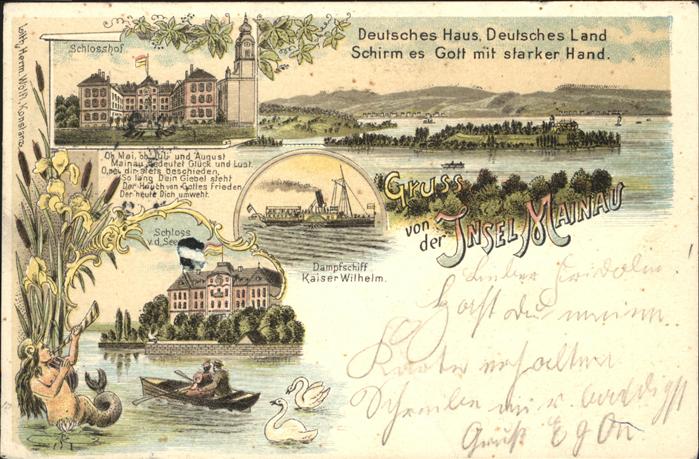 Schlosshof
Deutsches Haus, Deutsches Land
Schirm es Gott mit starker Hand.
Lith. Herm. Wolf, Konstanz.
Ob Mai, ob Juli und August
Mainau bedeutet Glück und Lust.
O, sei dir stets beschieden,
So lang Dein Giebel steht
Der Hauch von Gottes Frieden
Der heute Dich umweht.
Gruss
von der Insel Mainau
Schloss
v.d. See
Dampfschiff
Kaiser Wilhelm.
Lieber Fridolin!
Hast du meine
Karte erhalten
Schreibe mir baldigst
Gruß Egon.